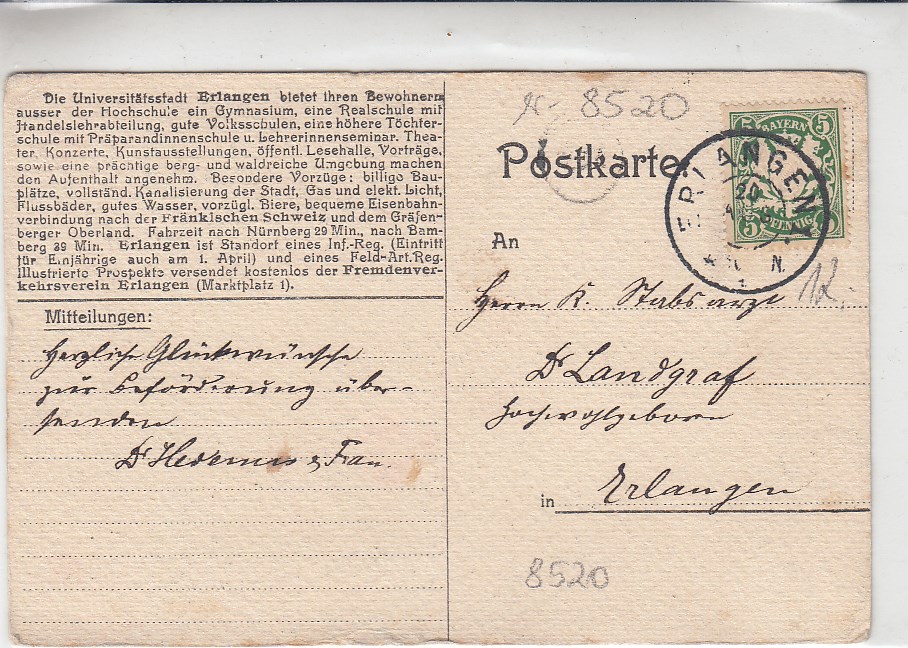 Die Universitätsstadt Erlangen bietet ihren Bewohnern
ausser der Hochschule ein Gymnasium, eine Realschule mit
Handelslehrabteilung, gute Volksschulen, eine höhere Töchter-
schule mit Präparandinnenschule u. Lehrerinnenseminar. Thea-
ter, Konzerte, Kunstausstellungen, öffentl. Lesehalle, Vorträge,
sowie eine prächtige berg- und waldreiche Umgebung machen
den Aufenthalt angenehm. Besondere Vorzüge: billige Bau-
plätze, vollständ. Kanalisierung der Stadt, Gas und elekt. Licht,
Flussbäder, gutes Wasser, vorzügl. Biere, bequeme Eisenbahn-
verbindung nach der Fränkischen Schweiz und dem Gräfen-
berger Oberland. Fahrzeit nach Nürnberg 29 Min., nach Bam-
berg 39 Min. Erlangen ist Standort eines Inf.-Reg. (Eintritt
für Einjährige auch am 1. April) und eines Feld-Art.Reg.
Illustrierte Prospekte versendet kostenlos der Fremdenver-
kehrsverein Erlangen (Marktplatz 1).
Mitteilungen:
Herzliche Glückwünsche
zur Beförderung über-
senden
Dr & Frau.
8520
Postkarte
5 BAYERN 5
5 PFENNIG 5
ERLANGEN
30
N.
12.
An
Herrn K. Stabsarzt
Dr Landgraf
Hochwohlgeboren
in Erlangen
8520